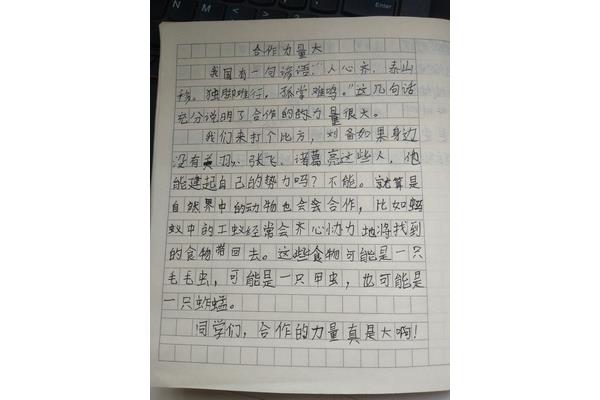 Enter
合作力量大
我国有一句谚语:"人心齐,泰山
移。独脚难行,孤掌难鸣。"这几句话
充分说明了合作的的力量很大。
我们来打个比方,刘备如果身边
没有关羽、张飞、诸葛亮这些人,他
能建起自己的势力吗?不能。就算是
自然界中的动物也会会合作,比如蚂
蚁中的工蚁经常会齐心协力地将找到
的食物带回去。这些食物可能是一只
毛毛虫,可能是一只甲虫,也可能是
一只蚱蜢。
同学们,合作的力量真是大啊!